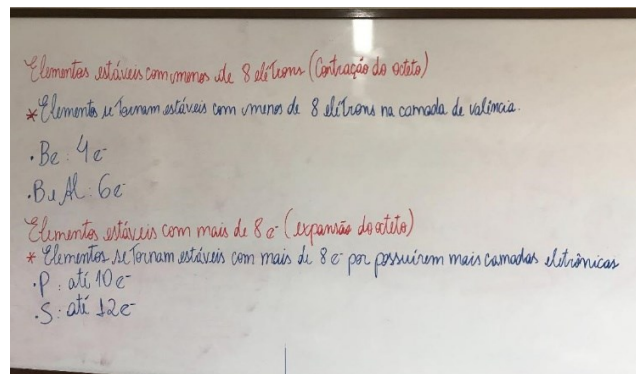 Elementos estáveis com menos de 8 elétrons (Contração do octeto)
* Elementos se tornam estáveis com menos de 8 elétrons na camada de valência.
. Be: 4e-
. B e Al: 6e-
Elementos estáveis com mais de 8 e- (expansão do octeto)
* Elementos se tornam estáveis com mais de 8 e- por possuírem mais camadas eletrônicas
. P: até 10e-
. S: até 12e-